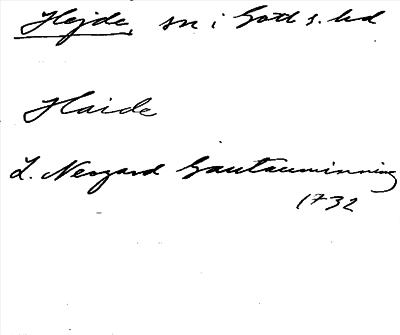 Hejde, sn i Gotl s. hd
Haide
L. Nergard Gautauminning
1732